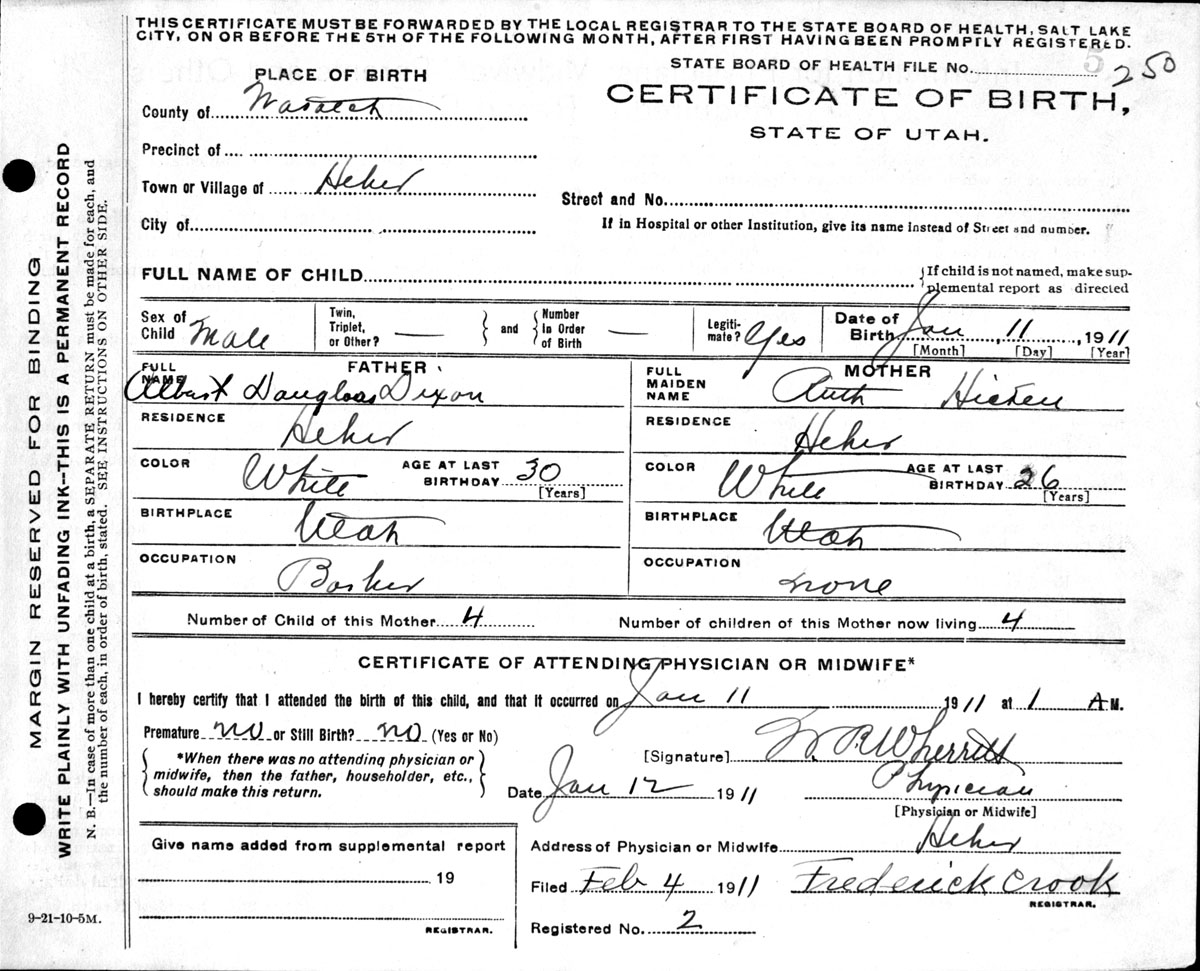 THIS CERTIFICATE MUST BE FORWARDED BY THE LOCAL REGISTRAR TO THE STATE BOARD OF HEALTH, SALT LAKE
CITY, ON OR BEFORE THE 5TH OF THE FOLLOWING MONTH, AFTER FIRST HAVING BEEN PROMPTLY REGISTERED.
STATE BOARD OF HEALTH FILE No. 250
PLACE OF BIRTH
CERTIFICATE OF BIRTH,
County of Wasatch
STATE OF UTAH.
Precinct of
Town or Village of Heber
Street and No.
City of
If in Hospital or other Institution, give its name instead of Street and number.
FULL NAME OF CHILD
{If child is not named, make sup-
plemental report as directed
Sex of Child Male
Twin, Triplet, or Other? —
and
Number In Order of Birth —
Legiti-mate? Yes
Date of Birth Jan 11, 1911
[Month] [Day] [Year]
FATHER
FULL NAME Albert Douglas Dixon
RESIDENCE Heber
COLOR White AGE AT LAST BIRTHDAY 30 [Years]
BIRTHPLACE Utah
OCCUPATION
MOTHER
FULL MAIDEN NAME Ruth Hicken
RESIDENCE Heber
COLOR White AGE AT LAST BIRTHDAY 26 [Years]
BIRTHPLACE Utah
OCCUPATION none
Number of Child of this Mother 4 Number of children of this Mother now living 4
CERTIFICATE OF ATTENDING PHYSICIAN OR MIDWIFE*
I hereby certify that I attended the birth of this child, and that it occurred on Jan 11 1911 at 1 A M.
Premature no or Still Birth? no (Yes or No)
*When there was no attending physician or
midwife, then the father, householder, etc.,
should make this return.
[Signature] W. R. Wherritt
Date Jan 12 1911 Physician
[Physician or Midwife]
Give name added from supplemental report
19
REGISTRAR.
Address of Physician or Midwife Heber
Filed Feb 4 1911 Frederick Crook
REGISTRAR.
Registered No. 2
9-21-10-5M.
MARGIN RESERVED FOR BINDING
WRITE PLAINLY WITH UNFADING INK—THIS IS A PERMANENT RECORD
N. B.—In case of more than one child at a birth, a SEPARATE RETURN must be made for each, and
the number of each, in order of birth, stated. SEE INSTRUCTIONS ON OTHER SIDE.